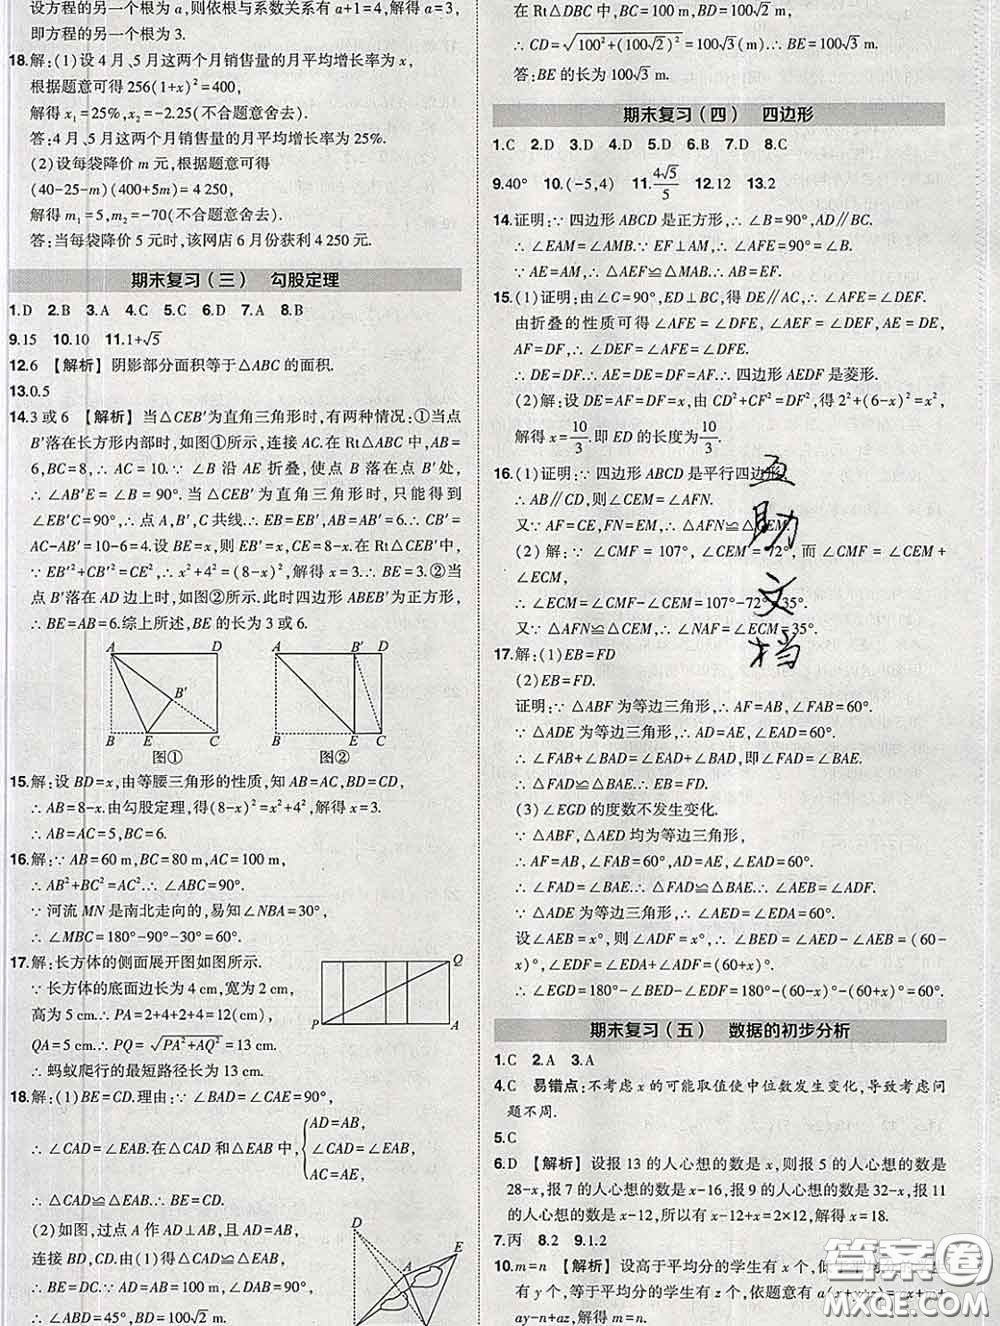 设方程的另一个根为 a,则依根与系数关系有 a+1=4,解得 a=3,
即方程的另一个根为 3.
18.解:(1)设 4 月、5 月这两个月销售量的月平均增长率为 x,
根据题意可得 256(1+x)²=400,
解得 x₁=25%,x₂=-2.25(不合题意舍去).
答:4 月、5 月这两个月销售量的月平均增长率为 25%.
(2)设每袋降价 m 元,根据题意可得
(40-25-m)(400+5m)=4 250,
解得 m₁=5,m₂=-70(不合题意舍去).
答:当每袋降价 5 元时,该网店 6 月份获利 4 250 元.
期末复习(三) 勾股定理
1.D 2.B 3.A 4.C 5.C 6.D 7.A 8.B
9.15 10.10 11.1+√5
12.6 【解析】 阴影部分面积等于△ABC 的面积.
13.0.5
14.3 或 6 【解析】 当△CEB′为直角三角形时,有两种情况:①当点
B′落在长方形内部时,如图①所示,连接 AC.在 Rt△ABC 中,AB=
6,BC=8,∴AC=10.∵∠B 沿 AE 折叠,使点 B 落在点 B′处,
∴∠AB′E=∠B=90°.当△CEB′为直角三角形时,只能得到
∠EB′C=90°,∴点 A,B′,C 共线.∴EB=EB′,AB=AB′=6.∴CB′=
AC-AB′=10-6=4.设 BE=x,则 EB′=x,CE=8-x.在 Rt△CEB′中,
∵EB′²+CB′²=CE²,∴x²+4²=(8-x)²,解得 x=3.∴BE=3.②当
点 B′落在 AD 边上时,如图②所示.此时四边形 ABEB′为正方形,
∴BE=AB=6.综上所述,BE 的长为 3 或 6.
A D B′ B E C
图①
A B′ D B E C
图②
15.解:设 BD=x,由等腰三角形的性质,知 AB=AC,BD=CD,
∴AB=8-x.由勾股定理,得(8-x)²=x²+4²,解得 x=3.
∴AB=AC=5,BC=6.
16.解:∵AB=60 m,BC=80 m,AC=100 m,
∴AB²+BC²=AC².∴∠ABC=90°.
∵河流 MN 是南北走向的,易知∠NBA=30°,
∴∠MBC=180°-90°-30°=60°.
17.解:长方体的侧面展开图如图所示.
∵长方体的底面边长为 4 cm,宽为 2 cm,
高为 5 cm,∴PA=2+4+2+4=12(cm),
QA=5 cm.∴PQ=√PA²+AQ²=13 cm.
∴蚂蚁爬行的最短路径长为 13 cm.
Q P A
18.解:(1)BE=CD.理由:∵∠BAD=∠CAE=90°,
∴∠CAD=∠EAB.在△CAD 和△EAB 中,{AD=AB,
∠CAD=∠EAB,
AC=AE,
∴△CAD≌△EAB.∴BE=CD.
(2)如图,过点 A 作 AD⊥AB,且 AD=AB,
连接 BD,CD.由(1)得△CAD≌△EAB,
∴BE=DC.∵AD=AB=100 m,AD⊥AB,
∴∠ABD=45°,BD=100√2 m.
D E A
在 Rt△DBC 中,BC=100 m,BD=100√2 m,
∴CD=√100²+(100√2)²=100√3(m).∴BE=100√3 m.
答:BE 的长为 100√3 m.
期末复习(四) 四边形
1.C 2.D 3.D 4.D 5.D 6.B 7.D 8.C
9.40° 10.(-5,4) 11.4√5/5 12.12 13.2
14.证明:∵四边形 ABCD 是正方形,∴∠B=90°,AD∥BC.
∴∠EAM=∠AMB.∵EF⊥AM,∴∠AFE=90°=∠B.
∵AE=AM,∴△AEF≌△MAB.∴EF=AB.
15.(1)证明:由∠C=90°,ED⊥BC,得 DE∥AC,∴∠AFE=∠DEF.
由折叠的性质可得∠AFE=∠DFE,∠AEF=∠DEF,AE=DE,
AF=DF,∴∠DEF=∠DFE.
∴DE=DF=AF=AE.∴四边形 AEDF 是菱形.
(2)解:设 DE=AF=DF=x,由 CD²+CF²=DF²,得 2²+(6-x)²=x²,
解得 x=10/3.即 ED 的长度为10/3.
16.(1)证明:∵四边形 ABCD 是平行四边形,
∴AB∥CD,则∠CEM=∠AFN.
又∵AF=CE,FN=EM,∴△AFN≌△CEM.
(2)解:∵∠CMF=107°,∠CEM=72°,而∠CMF=∠CEM+
∠ECM,
∴∠ECM=∠CMF-∠CEM=107°-72°=35°.
又∵△AFN≌△CEM,∴∠NAF=∠ECM=35°.
17.解:(1)EB=FD
(2)EB=FD.
证明:∵△ABF 为等边三角形,∴AF=AB,∠FAB=60°.
∵△ADE 为等边三角形,∴AD=AE,∠EAD=60°.
∴∠FAB+∠BAD=∠EAD+∠BAD,即∠FAD=∠BAE.
∴△FAD≌△BAE.∴EB=FD.
(3)∠EGD 的度数不发生变化.
∵△ABF,△AED 均为等边三角形,
∴AF=AB,∠FAB=60°,AD=AE,∠EAD=60°.
∴∠FAD=∠BAE.∴△FAD≌△BAE.∴∠AEB=∠ADF.
∵△ADE 为等边三角形,∴∠AED=∠EDA=60°.
设∠AEB=x°,则∠ADF=x°,∴∠BED=∠AED-∠AEB=(60-
x)°,∠EDF=∠EDA+∠ADF=(60+x)°.
∴∠EGD=180°-∠BED-∠EDF=180°-(60-x)°-(60+x)°=60°.
期末复习(五) 数据的初步分析
1.C 2.A 3.A
4.C 易错点:不考虑 x 的可能取值使中位数发生变化,导致考虑问
题不周.
5.C
6.D 【解析】 设报 13 的人心想的数是 x,则报 5 的人心想的数是
28-x,报 7 的人心想的数是 x-16,报 9 的人心想的数是 32-x,报 11
的人心想的数是 x-12,所以有 x-12+x=2×12,解得 x=18.
7.丙 8.2 9.1.2
10.m=n 【解析】 设高于平均分的学生有 x 个,低于
有 y 个,等于平均分的学生有 z 个,依题意
ay-n+az,解得 m=n.
互助文档
答案圈
MXQE.COM